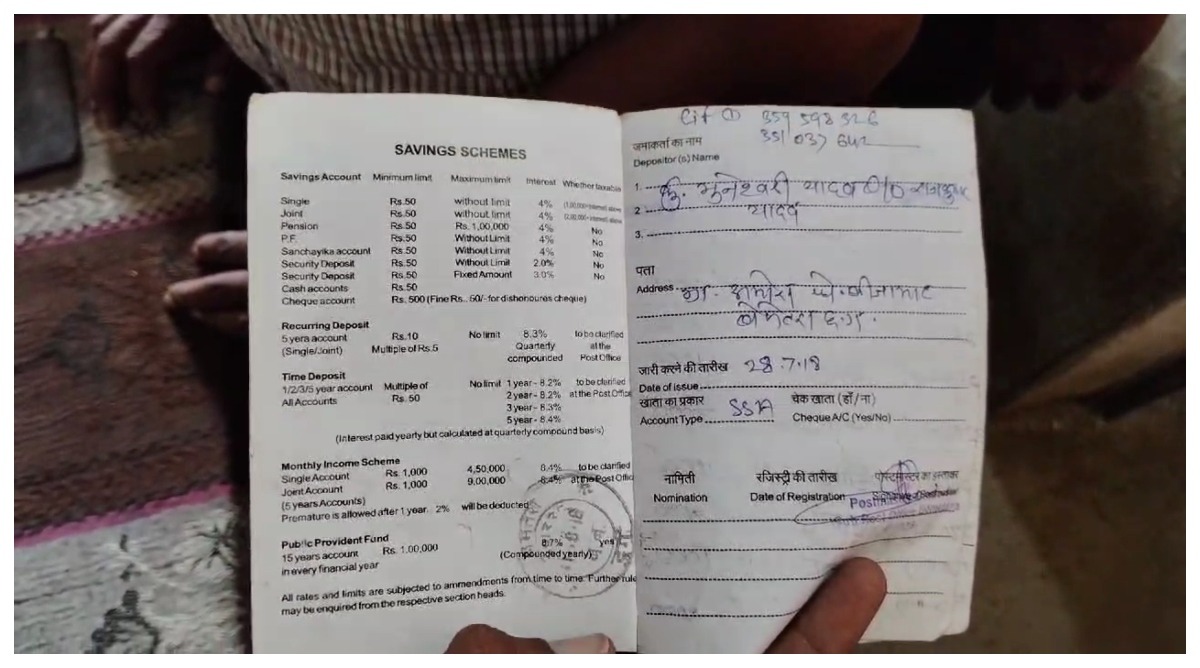 SAVINGS SCHEMES
Savings Account Minimum limit Maximum limit Interest Whether taxable
Single Rs.50 without limit 4%
Joint Rs.50 without limit 4%
Pension Rs.50 Rs. 1,00,000 4% No
P.F. Rs.50 Without Limit 4% No
Sanchayika account Rs.50 Without Limit 4% No
Security Deposit Rs.50 Without Limit 2.0% No
Security Deposit Rs.50 Fixed Amount 3.0% No
Cash accounts Rs.50
Cheque account Rs. 500 (Fine Rs.. 50/- for dishonoures cheque)
Recurring Deposit
5 yera account Rs.10 No limit 8.3% to be clarified
(Single/Joint) Multiple of Rs.5 Quarterly at the
compounded Post Office
Time Deposit
1/2/3/5 year account Multiple of No limit 1 year - 8.2% to be clarified
All Accounts Rs. 50 2 year - 8.2% at the Post Office
3 year - 8.3%
5 year - 8.4%
(Interest paid yearly but calculated at quarterly compound basis)
Monthly Income Scheme
Single Account Rs. 1,000 4,50,000 8.4% to be clarified
Joint Account Rs. 1,000 9,00,000 8.4% at the Post Offic
(5 years Accounts)
Premature is allowed after 1 year. 2% will be deducted
Public Provident Fund
15 years account Rs. 1,00,000 8.7% yes
in every financial year (Compounded yearly)
All rates and limits are subjected to ammendments from time to time. Further rule
may be enquired from the respective section heads.
Cif ① 359 598 326
351 037 642
जमाकर्ता का नाम
Depositor (s) Name
1. कु. भुनेश्वरी यादव D/O राजकुमार
2 यादव
3.
पता
Address
जारी करने की तारीख 28.7.18
Date of issue
खाता का प्रकार SSA चेक खाता (हाँ / ना)
Account Type Cheque A/C (Yes/No)
नामिती रजिस्ट्री की तारीख पोस्टमास्टर का हस्ताक्षर
Nomination Date of Registration